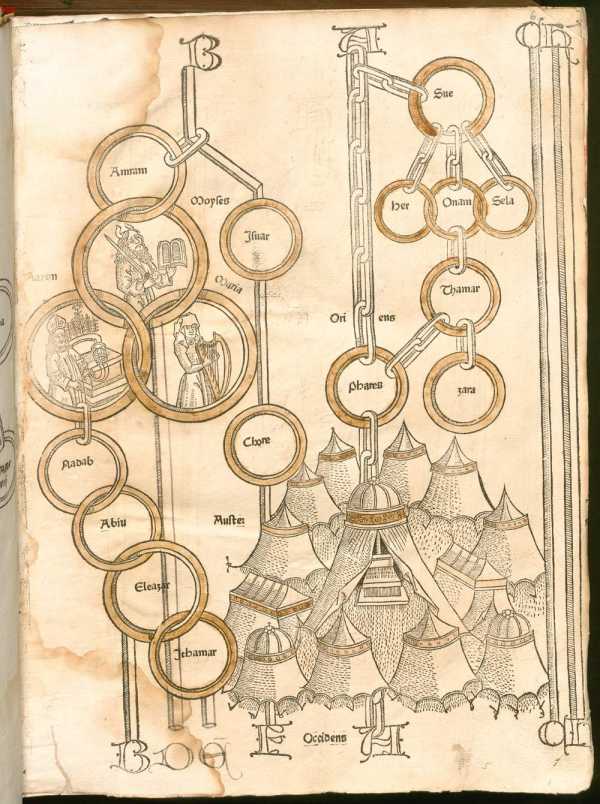 B A
Sue
Amram
Moyses
Her Onam Sela
Isuar
Aaron
Maria
Thamar
Ori ens
Phares
zara
Chore
Nadab
Abiu
Auste
Eleazar
Ithamar
B
Occidens
A